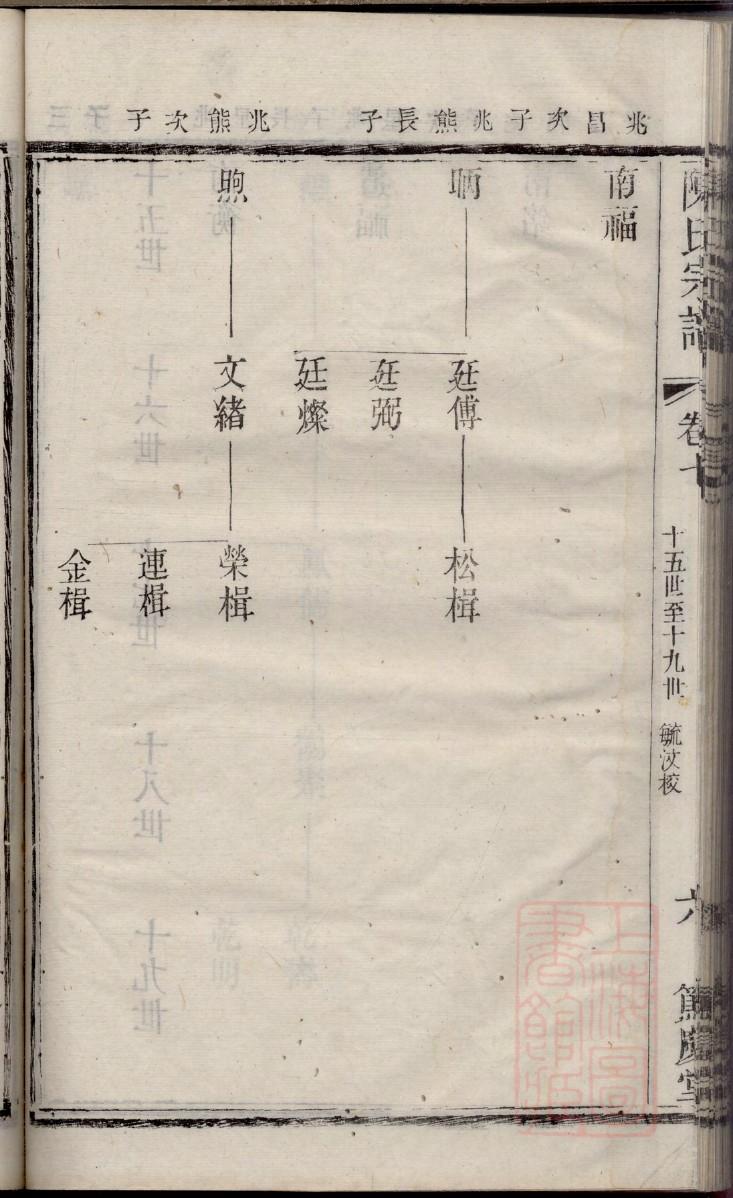 陳氏宗譜
卷七
十五世至十九世
毓汶校
六
篤慶堂
兆昌次子
兆熊長子
兆熊次子
南福
昞
煦
廷傅
廷弼
廷燦
文緒
松楫
榮楫
連楫
金楫
上海圖書館藏